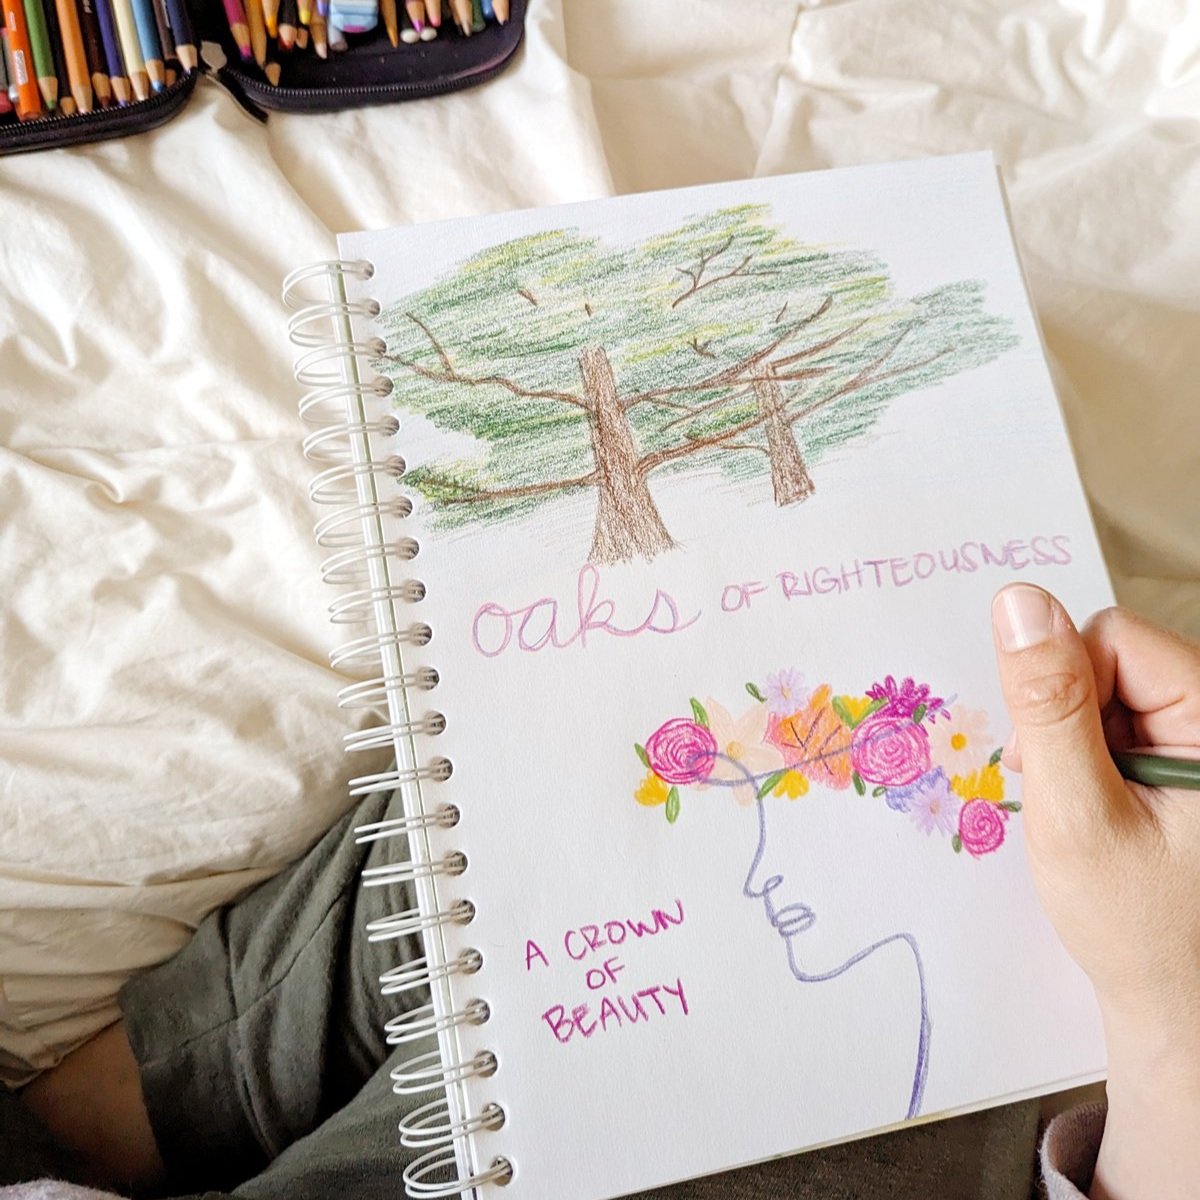 oaks OF RIGHTEOUSNESS
A CROWN
OF
BEAUTY